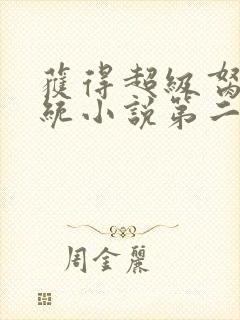 獲得超級
統小說第二
周金麗